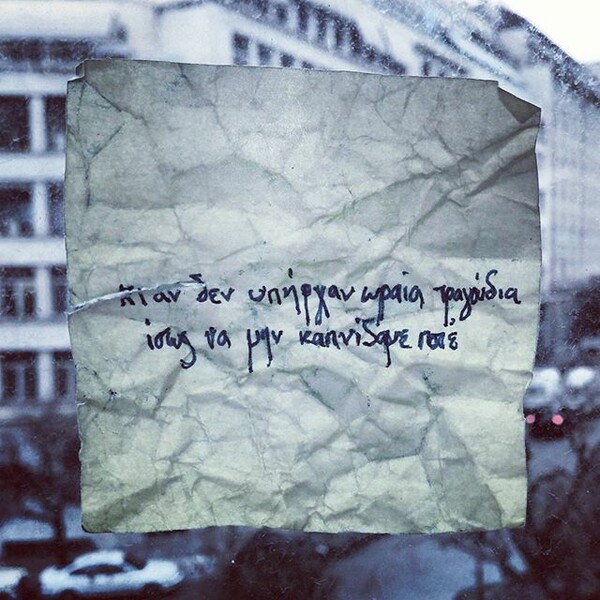 κι αν δεν υπήρχαν ωραία τραγούδια
ίσως να μην καπνίζαμε ποτέ